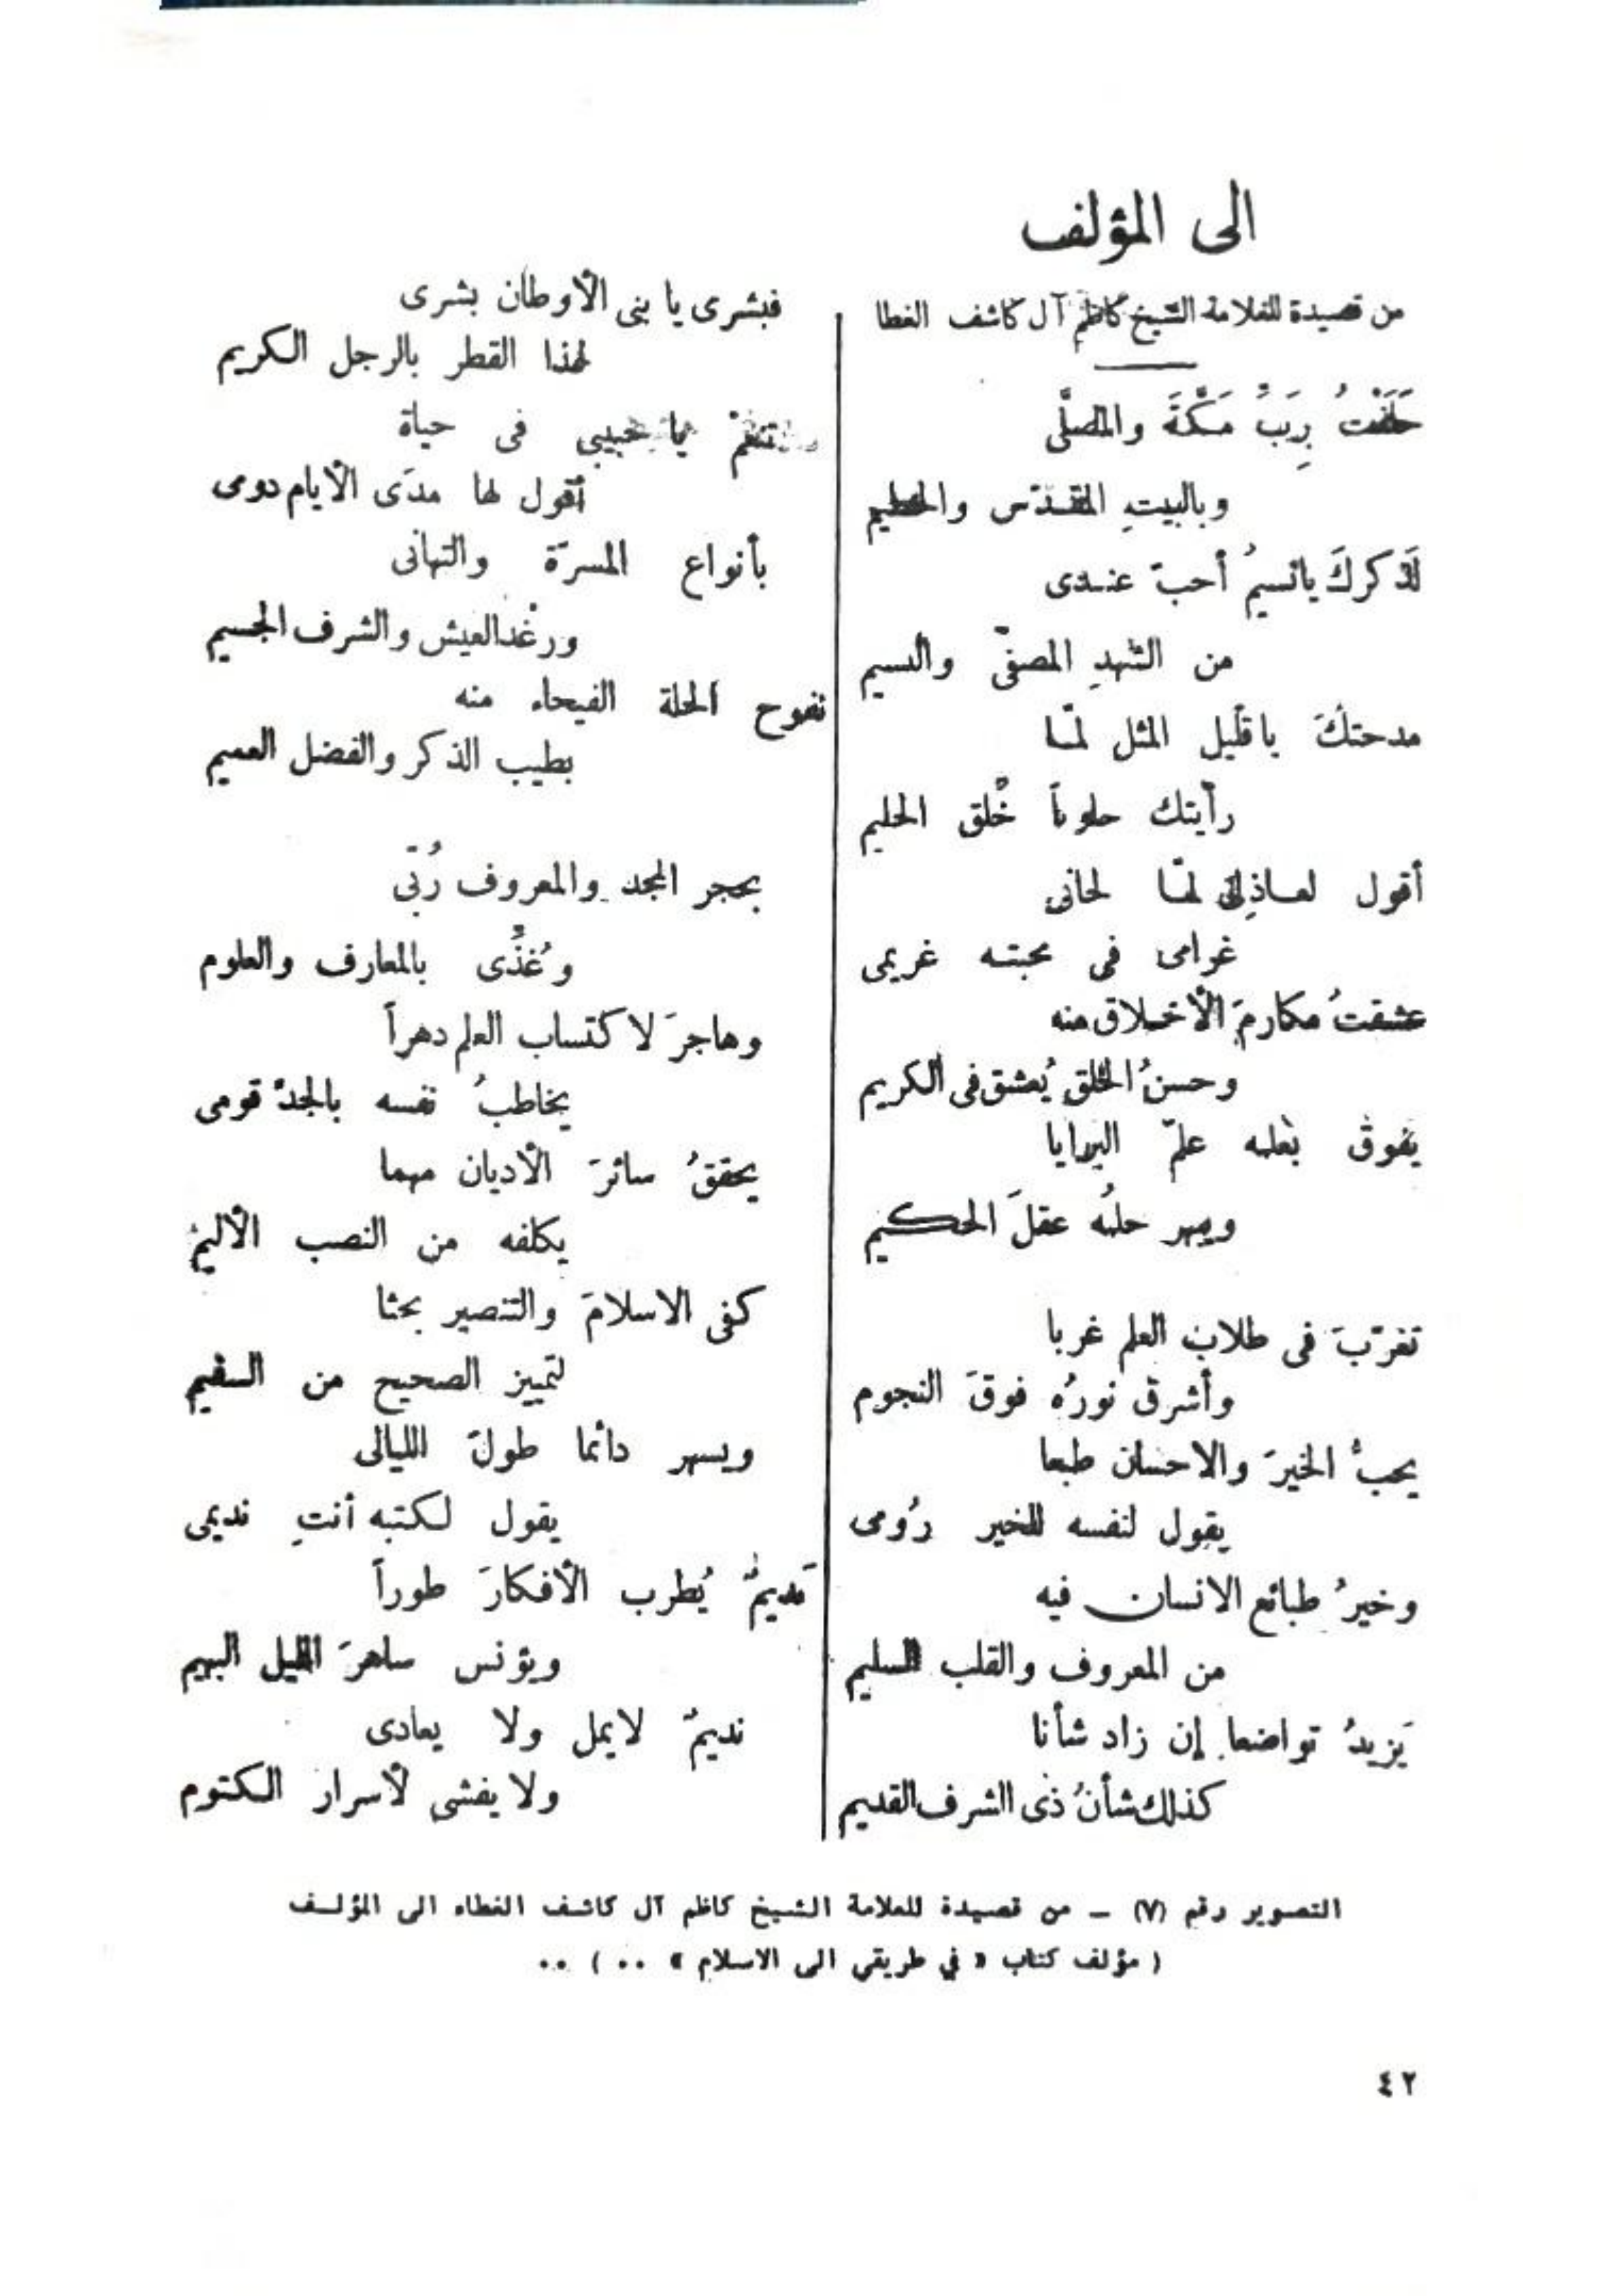 الى المؤلف
من قصيدة للعلامة الشيخ كاظم آل كاشف الغطا
حَلَفْتُ بِرَبِّ مَكَّةَ والمصلَّى
وبالبيتِ المقدّس والحطيم
لَذكركَ يانسيمُ أحبّ عندى
من الشهدِ المصفّى والنسيم
مدحتكَ ياقليل المثل لمّا
رأيتك حاوياً خُلق الحليم
أقول لعاذِلى لمّا لحانى
غرامى فى محبته غريمى
عشقتُ مكارمَ الأخلاق منه
وحسنُ الخلق يُعشق فى الكريم
يفوق بعلمه علمَ البرايا
ويبهر حلمُه عقلَ الحكيم
تغرّبَ فى طلاب العلم غربا
وأشرق نورُه فوقَ النجوم
يحبُّ الخيرَ والاحسان طبعا
يقول لنفسه للخير رُومى
وخيرُ طبائع الانسان فيه
من المعروف والقلب السليم
يَزيدُ تواضعا إن زاد شأنا
كذلك شأنُ ذى الشرف القديم
فبشرى يا بنى الأوطان بشرى
لهذا القطر بالرجل الكريم
حبيبى فى حياة
أقول لها مدَى الأيام دومى
بأنواع المسرّة والتهانى
ورغد العيش والشرف الجسيم
تفوح الحلة الفيحاء منه
بطيب الذكر والفضل العميم
بحجر المجد والمعروف رُبّى
وغُذِّى بالمعارف والعلوم
وهاجرَ لاكتساب العلم دهراً
يخاطبُ نفسه بالجدّ قومى
يحققُ سائرَ الأديان مهما
يكلفه من النصب الأليم
كفى الاسلامَ والتنصير بحثا
لتمييز الصحيح من السقيم
ويسهر دائما طولَ الليالى
يقول لكتبه أنتِ نديمى
نديمٌ يُطرب الأفكارَ طوراً
ويؤنس ساهرَ الليل البهيم
نديمٌ لايمل ولا يعادى
ولا يفشى لأسرار الكتوم
التصوير رقم (٧) – من قصيدة للعلامة الشيخ كاظم آل كاشف الغطاء الى المؤلف
( مؤلف كتاب « في طريقي الى الاسلام » .. ) ..
٤٢